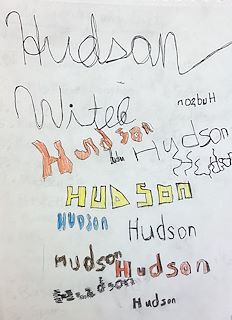 Hudson
Witek
Hudson
Hudson
Hudson
Hudson
HUDSON
HUDSON
Hudson
Hudson
Hudson
Hudson
Hudson